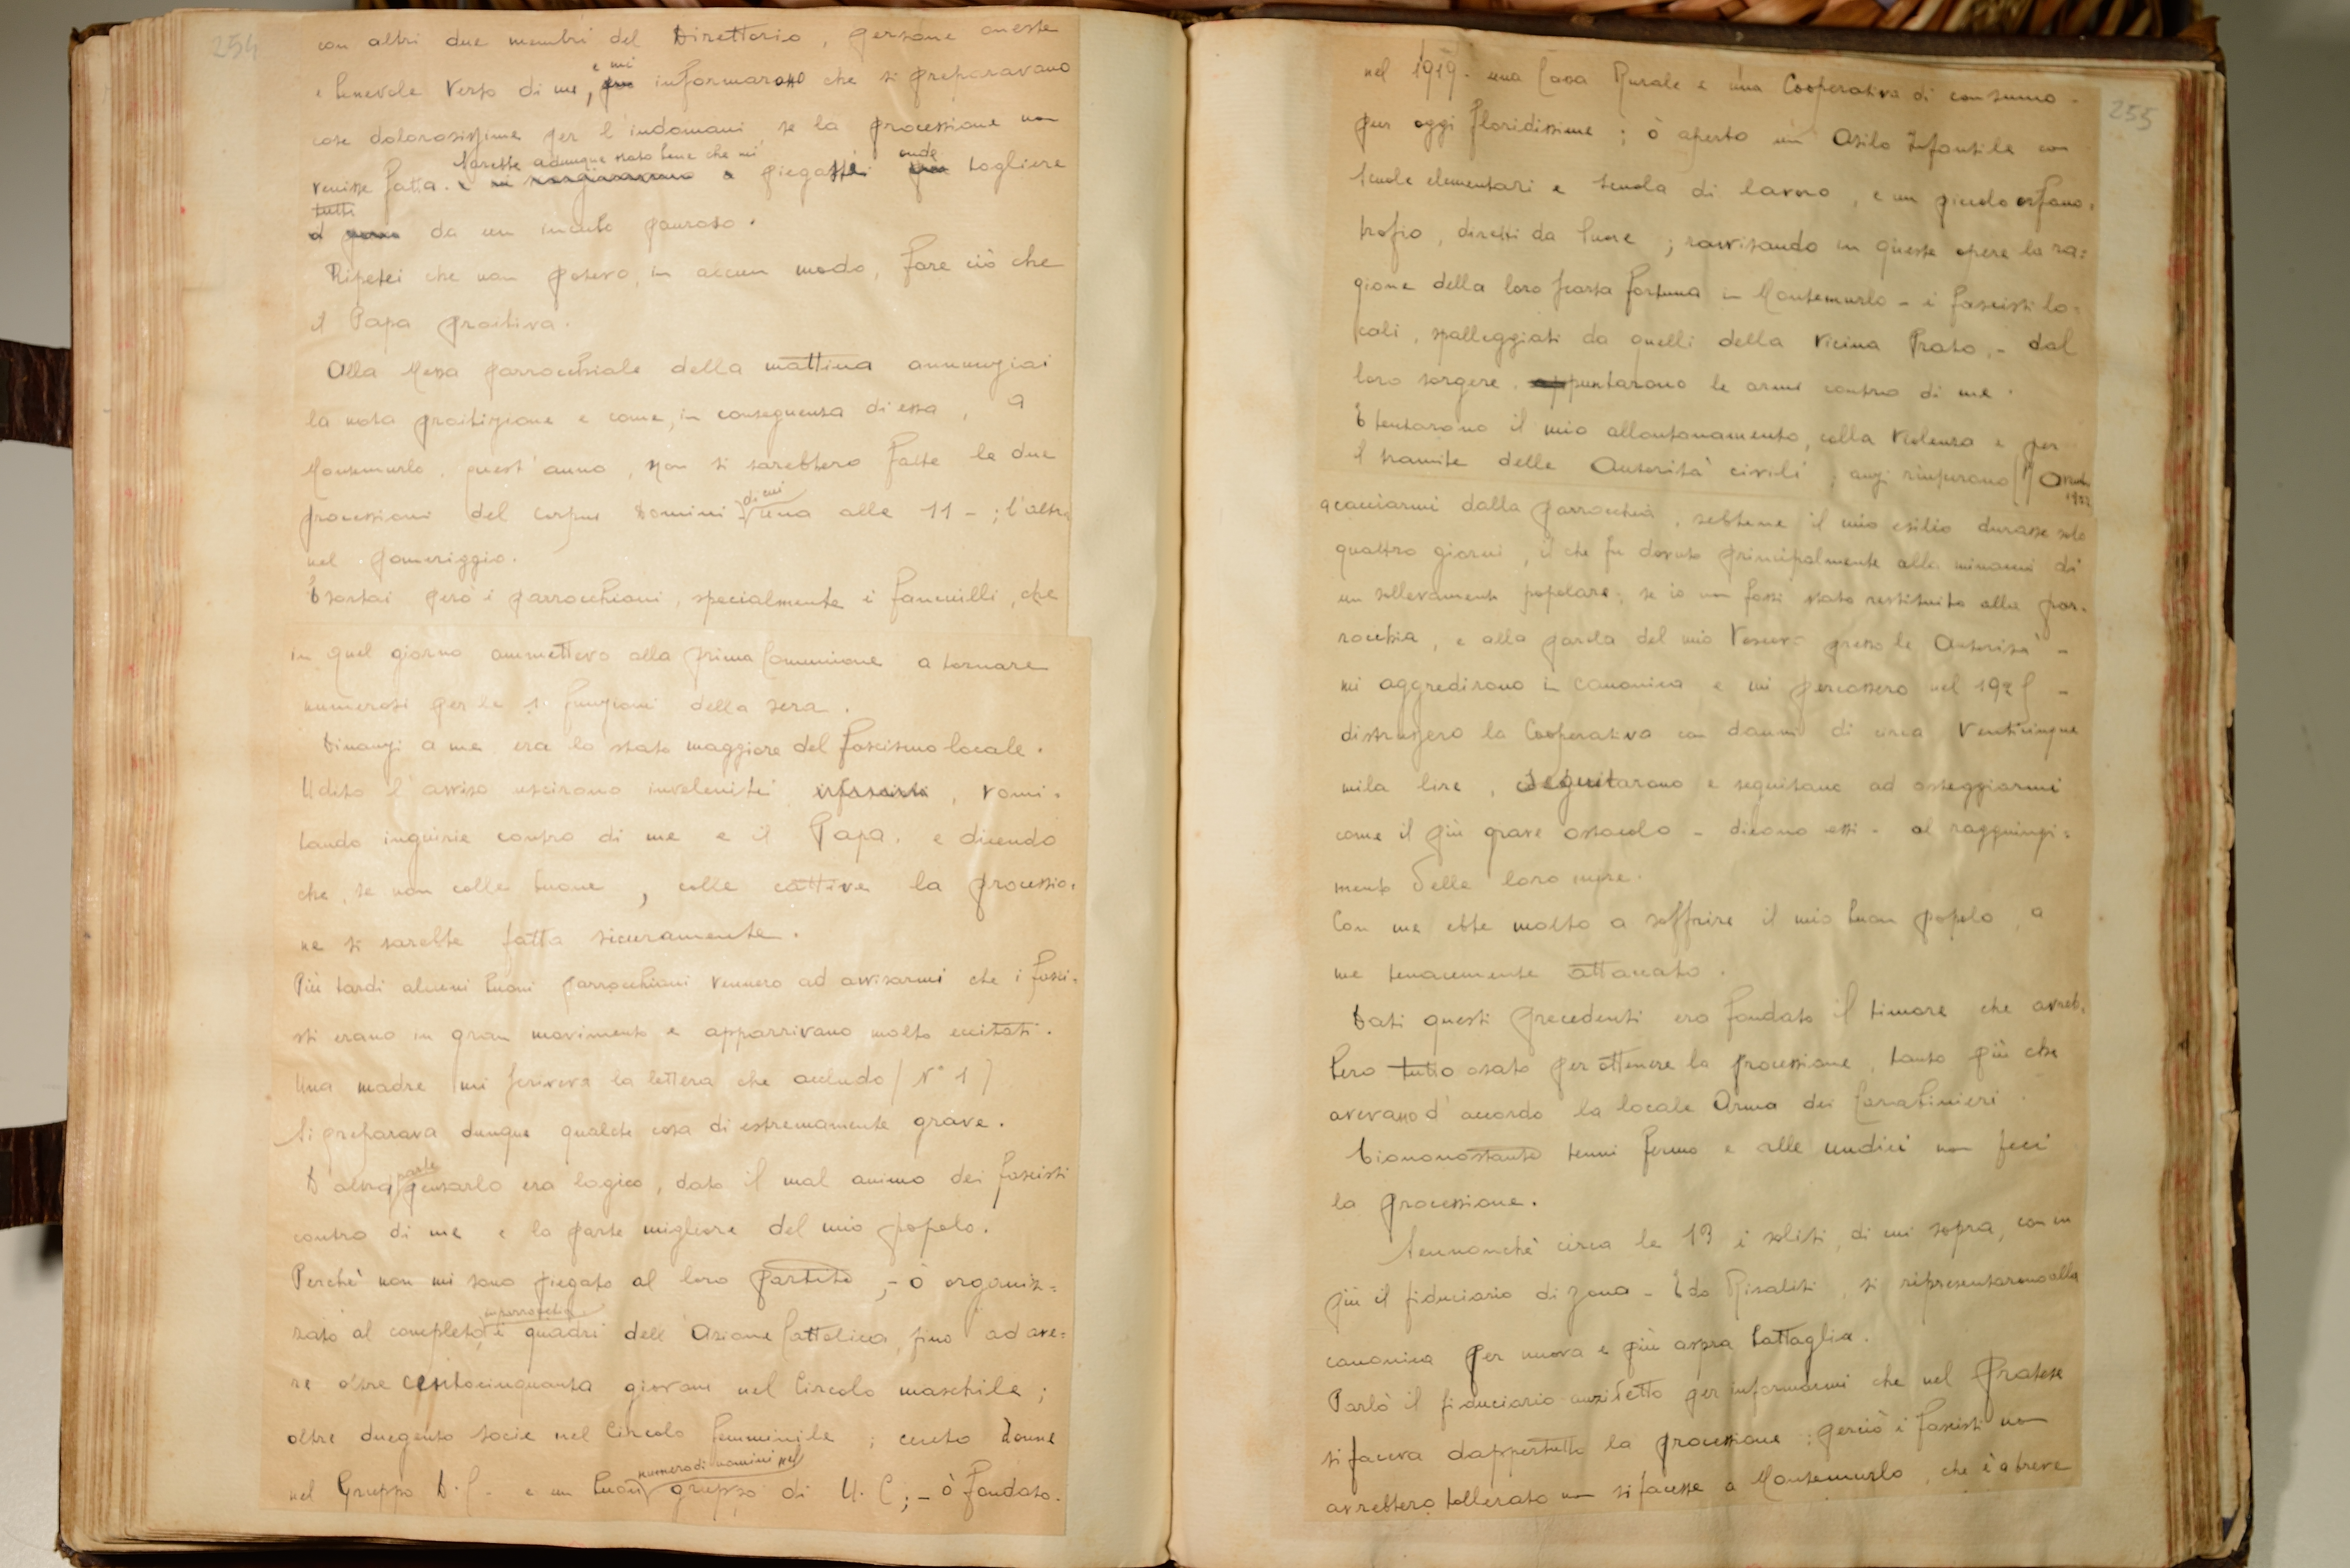 254
con altri due membri del Direttorio, persone oneste
e benevole verso di me, e mi informarono che si preparavano
cose dolorosissime per l'indomani se la processione non
venisse fatta. Sarebbe adunque stato bene che mi piegassi onde togliere
tutti da un incubo pauroso.
Ripetei che non potevo, in alcun modo, fare ciò che
il Papa proibiva.
Alla Messa parrocchiale della mattina annunziai
la nota proibizione e come, in conseguenza di essa, a
Montemurlo, quest'anno, non si sarebbero fatte le due
processioni del Corpus Domini di cui una alle 11 - ; l'altra
nel pomeriggio.
Esortai però i parrocchiani, specialmente i fanciulli, che
in quel giorno ammettevo alla prima Comunione a tornare
numerosi per le funzioni della sera.
Dinanzi a me era lo stato maggiore del fascismo locale.
Udito l'avviso uscirono inveleniti, vomi=
tando ingiurie contro di me e il Papa, e dicendo
che, se non colle buone, colle cattive la processio=
ne si sarebbe fatta sicuramente.
Più tardi alcuni buoni parrocchiani vennero ad avvisarmi che i fasci=
sti erano in gran movimento e apparivano molto eccitati.
Una madre mi scriveva la lettera che accludo (N° 1)
Si preparava dunque qualche cosa di estremamente grave.
D'altra parte pensarlo era logico, dato il mal animo dei fascisti
contro di me e la parte migliore del mio popolo.
Perchè non mi sono piegato al loro partito, - ò organiz=
zato al completo, in parrocchia i quadri dell'Azione Cattolica, fino ad ave=
re oltre centocinquanta giovani nel Circolo maschile;
oltre duegento socie nel Circolo femminile; cento Donne
nel Gruppo D.C. - e un buon numero di uomini nel gruppo di U.C; - ò fondato.
255
nel 1919 - una Cassa Rurale e una Cooperativa di consumo -
pur oggi floridissime; ò aperto un Asilo Infantile con
Scuole elementari e Scuola di lavoro, e un piccolo orfano=
trofio, diretti da Suore; ravvisando in queste opere la ra=
gione della loro scarsa fortuna in Montemurlo - i fascisti lo=
cali, spalleggiati da quelli della vicina Prato, - dal
loro sorgere, puntarono le armi contro di me.
E tentarono il mio allontanamento, colla violenza e per
il tramite delle Autorità civili; anzi riuscirono
a cacciarmi dalla parrocchia, sebbene il mio esilio durasse solo
quattro giorni, il che fu dovuto principalmente alla minaccia di
un sollevamento popolare, se io non fossi stato restituito alla par=
rocchia, e alla parola del mio Vescovo presso le Autorità -
mi aggredirono in canonica e mi percossero nel 192
distrussero la Cooperativa con danni di circa venticinque
mila lire, seguitarono e seguitano ad osteggiarmi
come il più grave ostacolo - dicono essi - al raggiungi=
mento delle loro mire.
Con me ebbe molto a soffrire il mio buon popolo, a
me tenacemente attaccato.
Dati questi precedenti era fondato il timore che avreb=
bero tutto osato per ottenere la processione, tanto più che
avevano d'accordo la locale Arma dei Carabinieri.
Ciononostante tenni fermo e alle undici non feci
la processione.
Sennonchè circa le 13 i soliti, di cui sopra, con in
più il fiduciario di zona - Edo Risaliti, si ripresentarono alla
canonica per nuova e più aspra battaglia.
Parlò il fiduciario anzidetto per informarmi che nel pratese
si faceva dappertutto la processione; perciò i fascisti non
avrebbero tollerato non si facesse a Montemurlo, che è a breve